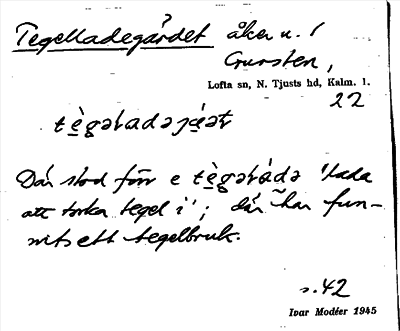 Tegelladegärdet åker u. f
Grursten,
Lofta sn, N. Tjusts hd, Kalm. l.
22
tègəɫadəjáəṭ
Där stod förr e tègəɫádə 'lada
att torka tegel i'; där har fun-
nits ett tegelbruk.
s. 42
Ivar Modéer 1945